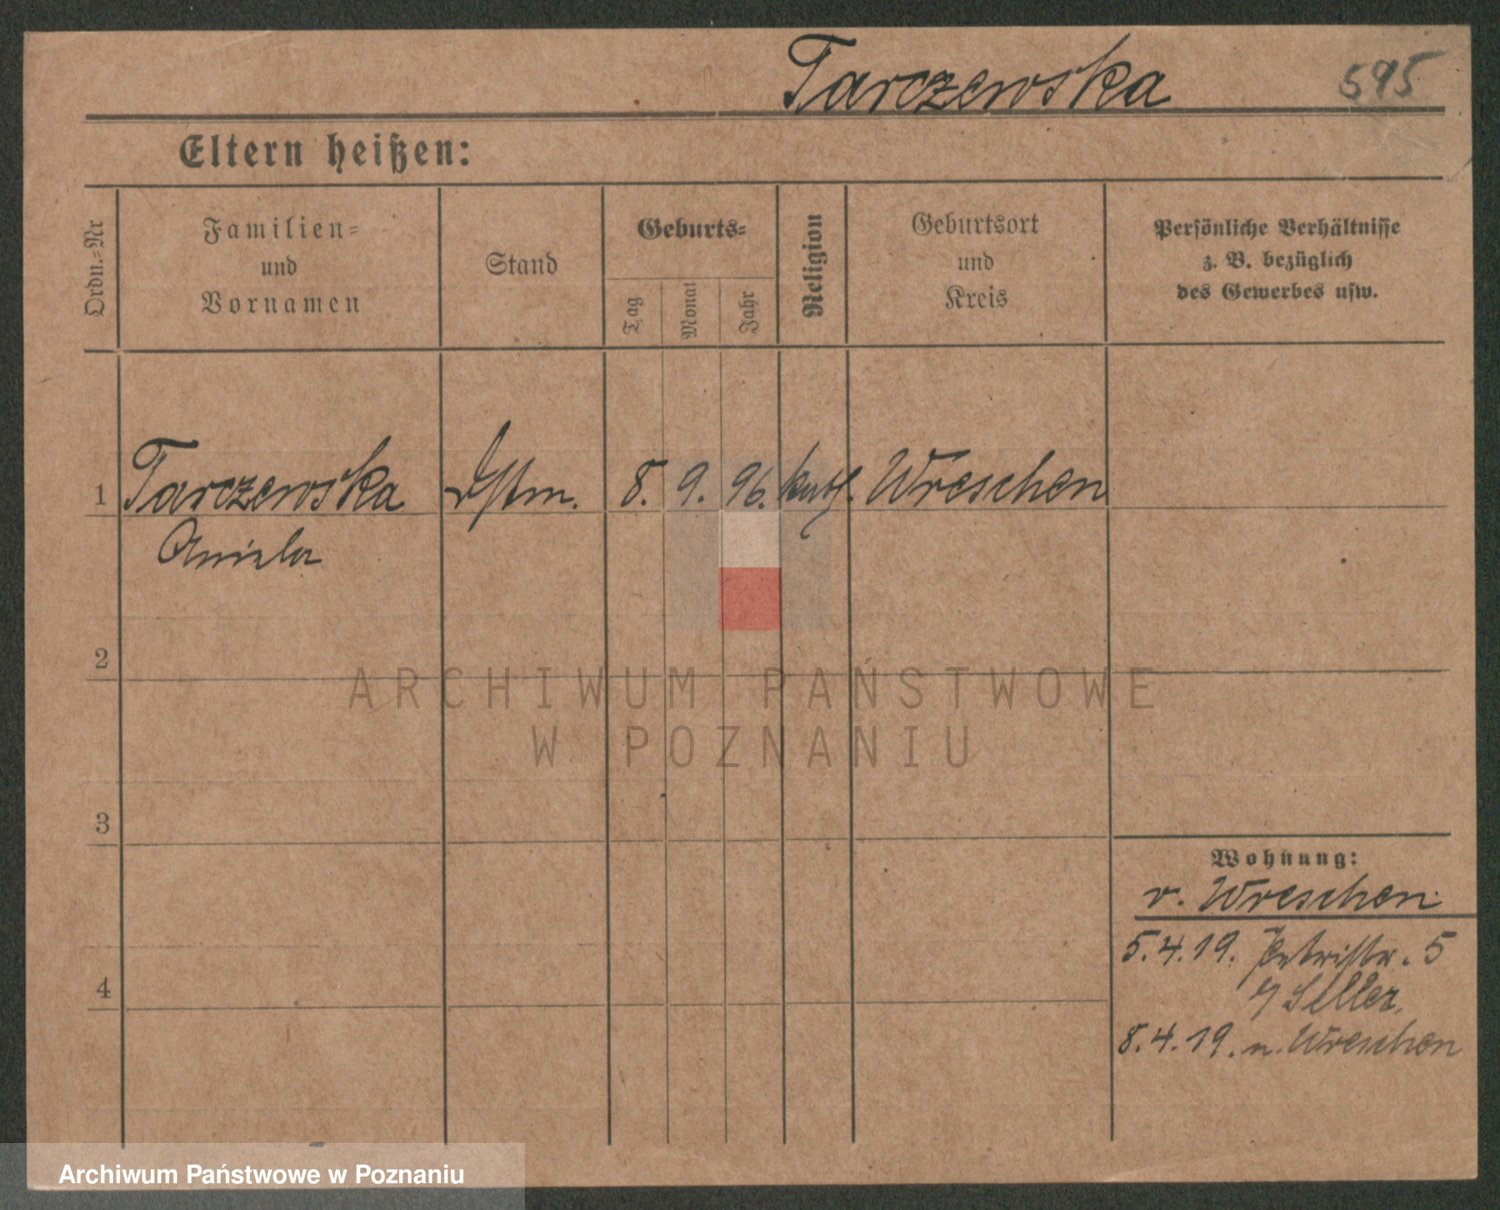 Tarczewska 595
Eltern heißen:
Ordn.-Nr
Familien- und Vornamen
Stand
Geburts-
Tag
Monat
Jahr
Religion
Geburtsort und Kreis
Persönliche Verhältnisse
z. B. bezüglich
des Gewerbes usw.
1 Tarczewska Dstm. 8. 9. 96. kath. Wreschen
Aniela
2
3
4
Wohnung:
v. Wreschen
5.4.19. Petristr. 5
8.4.19. n. Wreschen
ARCHIWUM PAŃSTWOWE
W POZNANIU
Archiwum Państwowe w Poznaniu